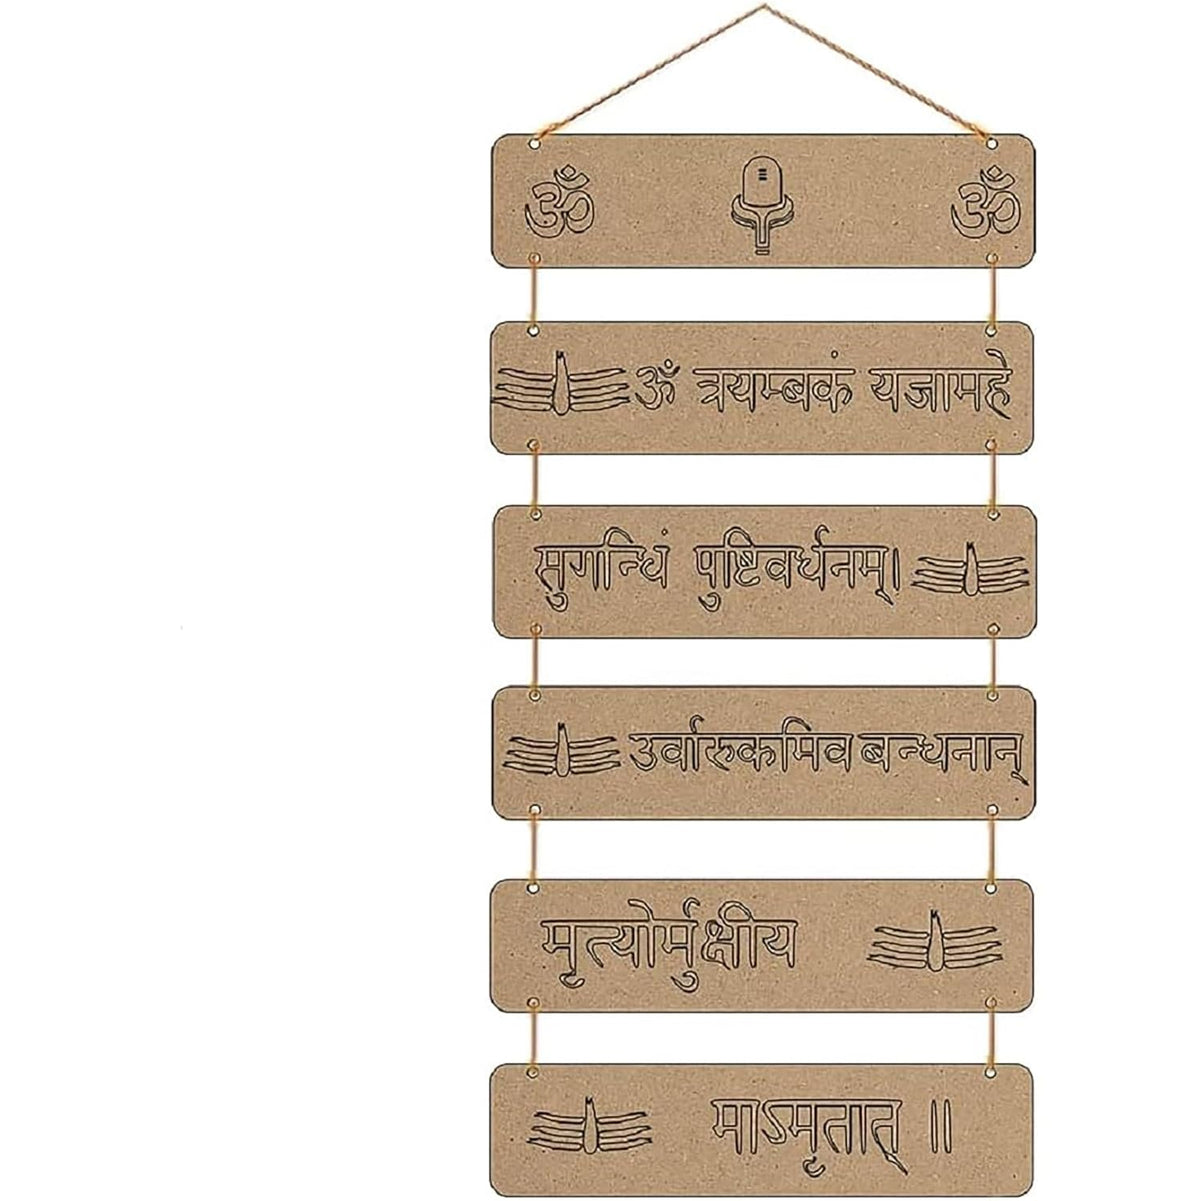 ॐ ॐ
ॐ त्रयम्बकं यजामहे
सुगन्धिं पुष्टिवर्धनम्।
उर्वारुकमिव बन्धनान्
मृत्योर्मुक्षीय
माऽमृतात् ॥